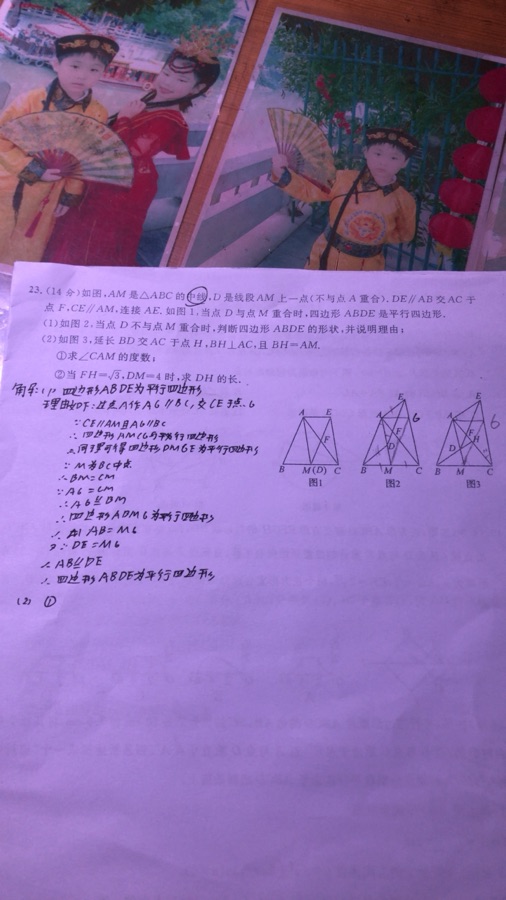 23. (14 分)如图,AM 是△ABC 的中线,D 是线段 AM 上一点(不与点 A 重合). DE∥AB 交 AC 于
点 F,CE∥AM,连接 AE. 如图 1,当点 D 与点 M 重合时,四边形 ABDE 是平行四边形.
(1)如图 2,当点 D 不与点 M 重合时,判断四边形 ABDE 的形状,并说明理由;
(2)如图 3,延长 BD 交 AC 于点 H,BH⊥AC,且 BH=AM.
①求∠CAM 的度数;
②当 FH=√3,DM=4 时,求 DH 的长.
解:(1) 四边形ABDE为平行四边形
理由如下:过点A作AG∥BC,交CE于点G
∵CE∥AM且AG∥BC
∴四边形AMCG为平行四边形
同理可得四边形DMGE为平行四边形
∵M为BC中点
∴BM=CM
∵AG=CM
∴AG∥BM
∴四边形ABMG为平行四边形
∴AB=MG
又∵DE=MG
∴AB∥DE
∴四边形ABDE为平行四边形
(2) ①
A E
F
B M(D) C
图1
E
A G
F
D
B M C
图2
E
A G
F H
D
B M C
图3